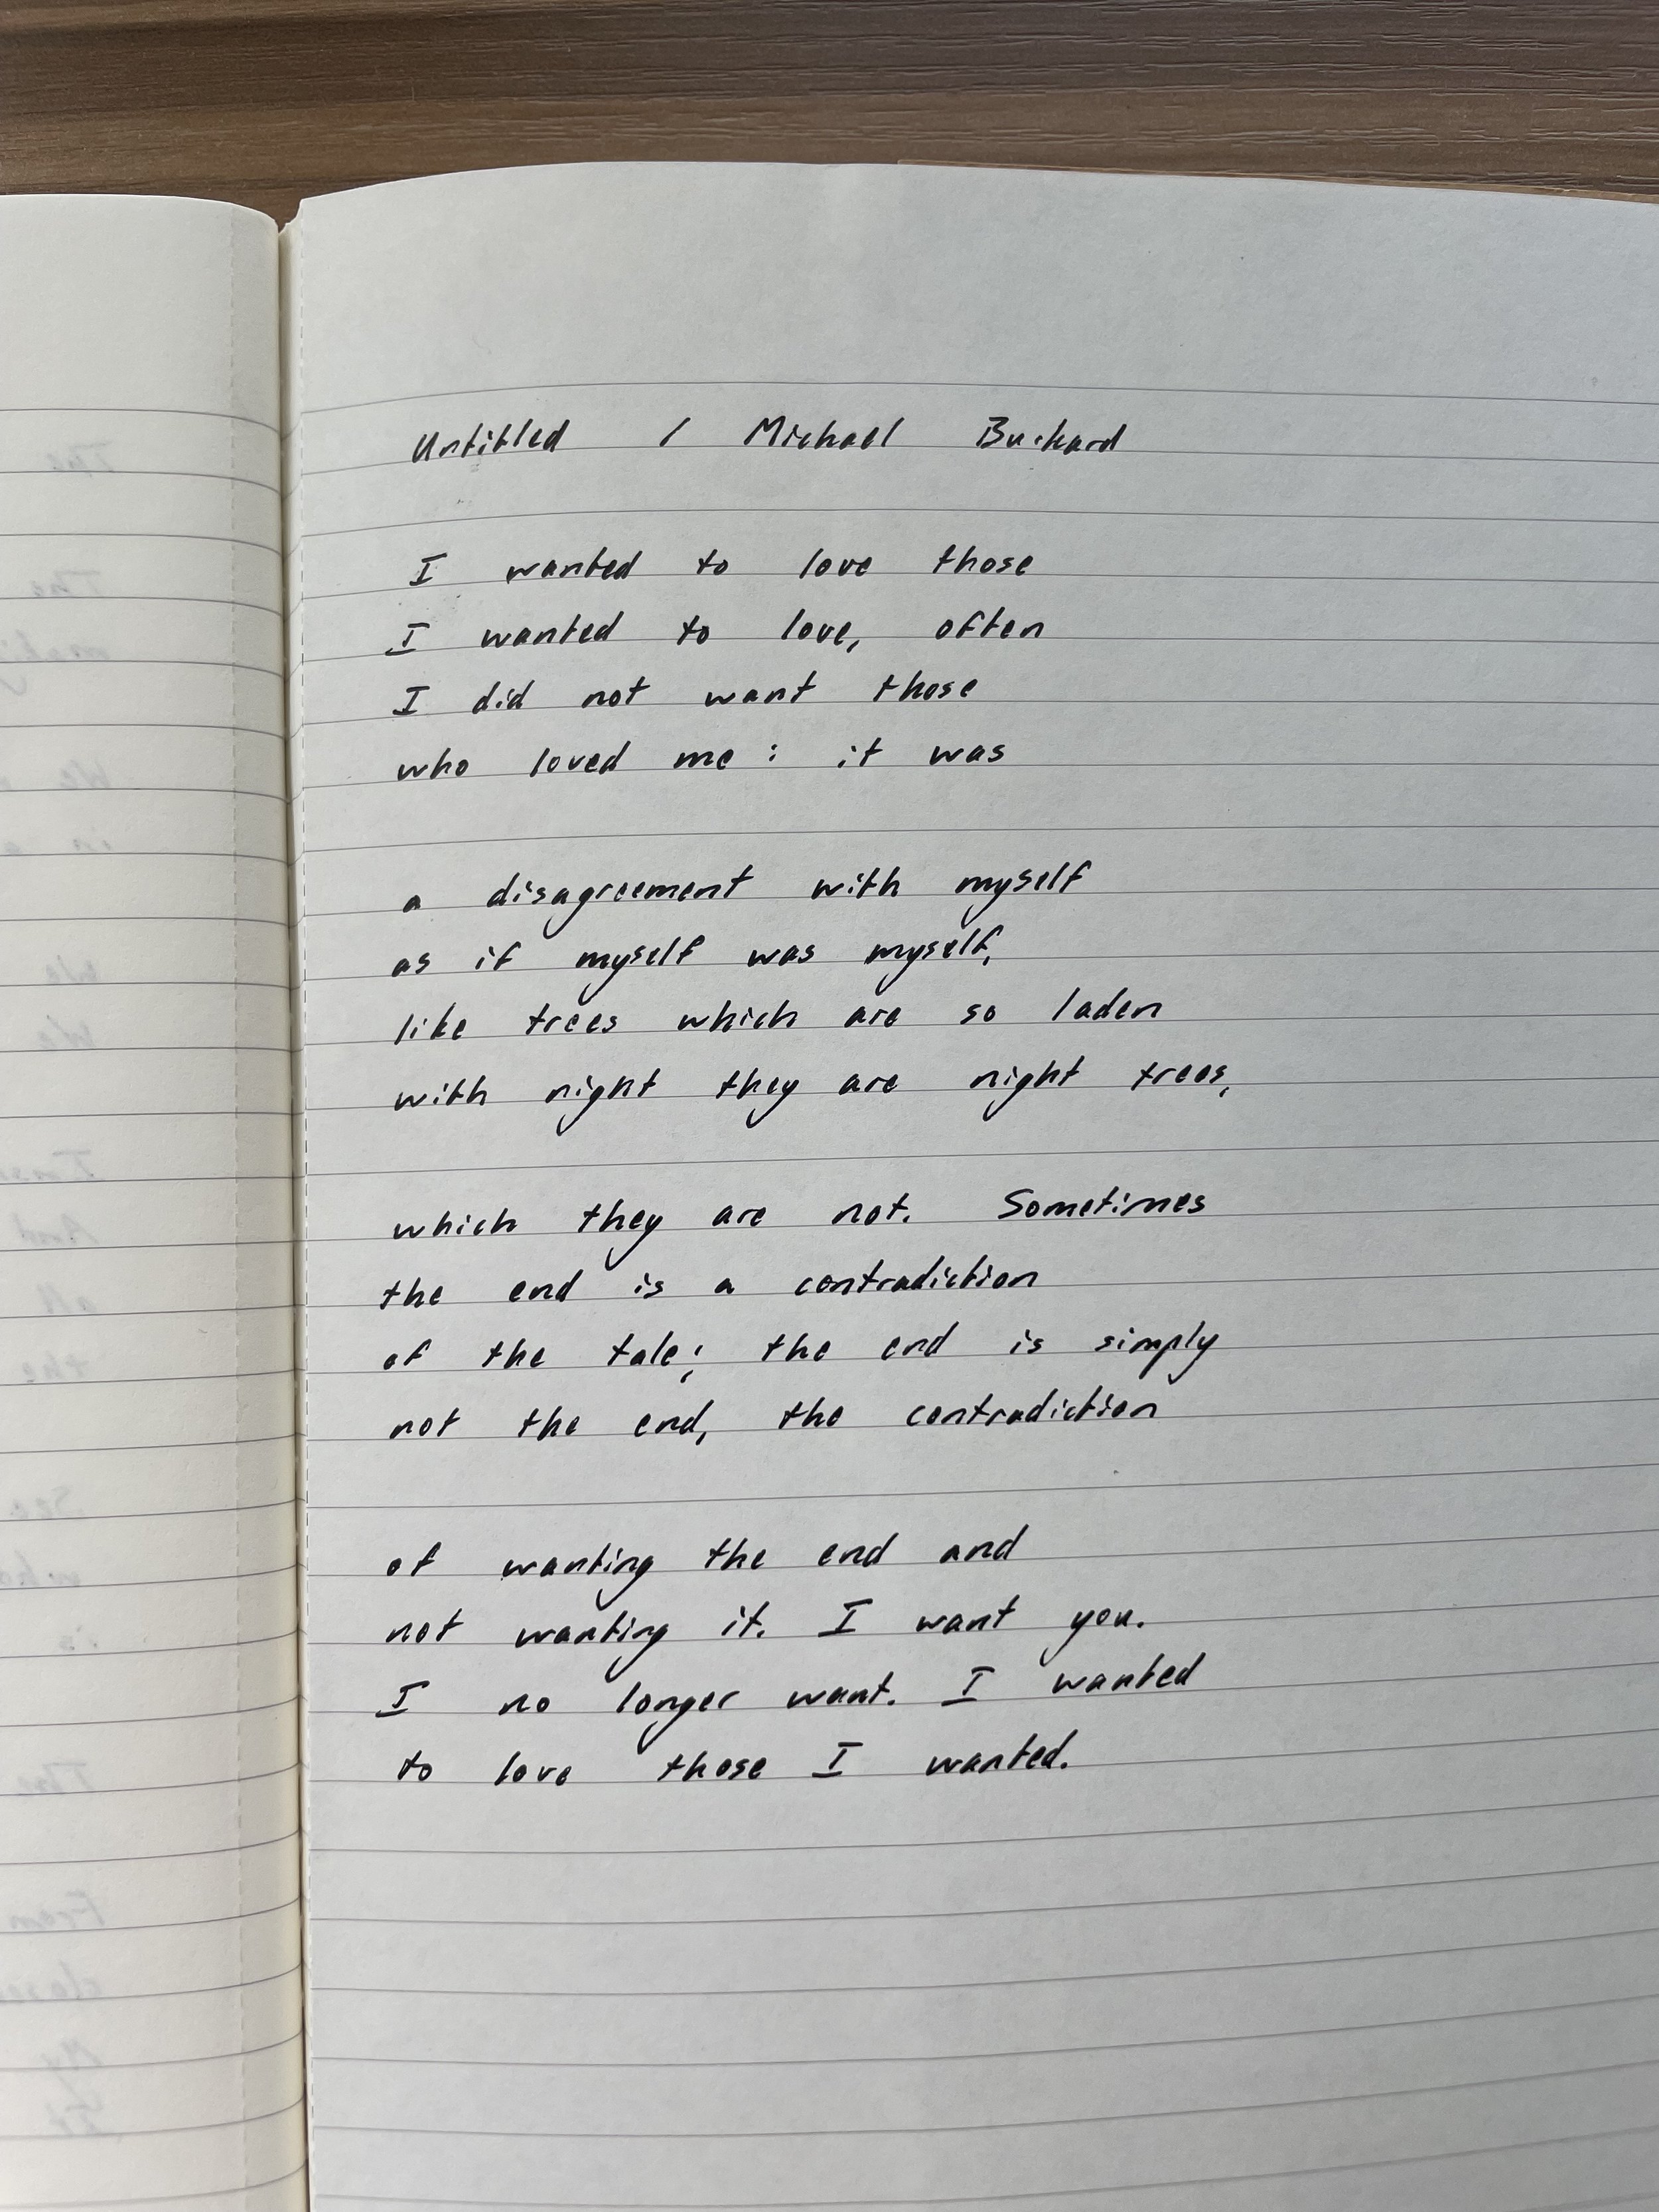 Untitled / Michael Burkard
I wanted to love those
I wanted to love, often
I did not want those
who loved me: it was
a disagreement with myself
as if myself was myself,
like trees which are so laden
with night they are night trees,
which they are not. Sometimes
the end is a contradiction
of the tale; the end is simply
not the end, the contradiction
of wanting the end and
not wanting it. I want you.
I no longer want. I wanted
to love those I wanted.